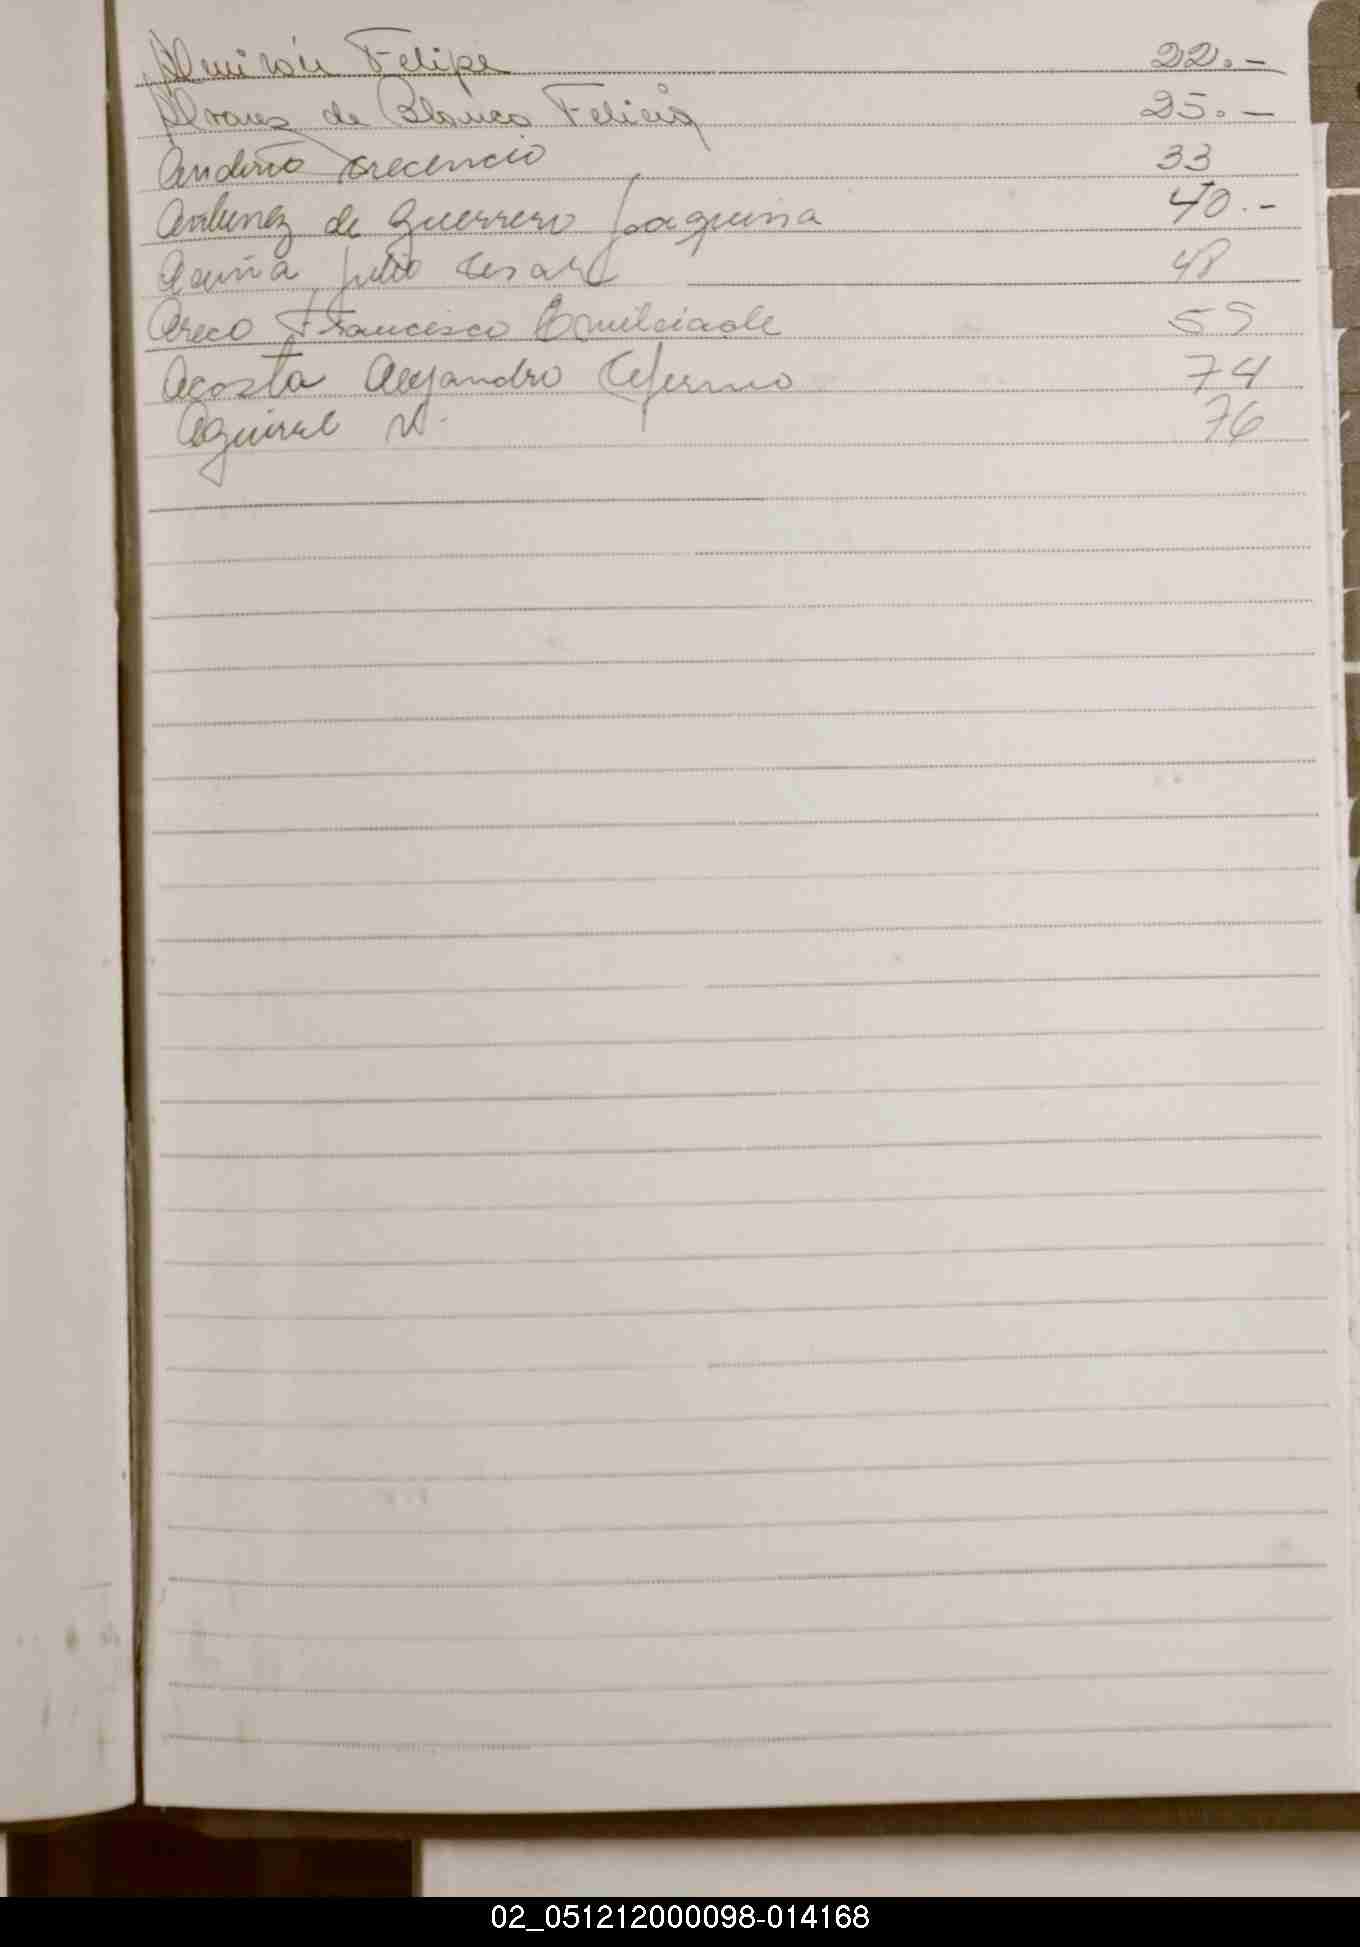 Almirón Felipe 22.-
Alvarez de Blanco Felicia 25.-
Andino Crecencio 33
Antunez de Guerrero Joaquina 40.-
Acuña Julio Cesar 48
Areco Francisco 55
Acosta Alejandro Ceferino 74
Aguirre N. 76
02_051212000098-014168